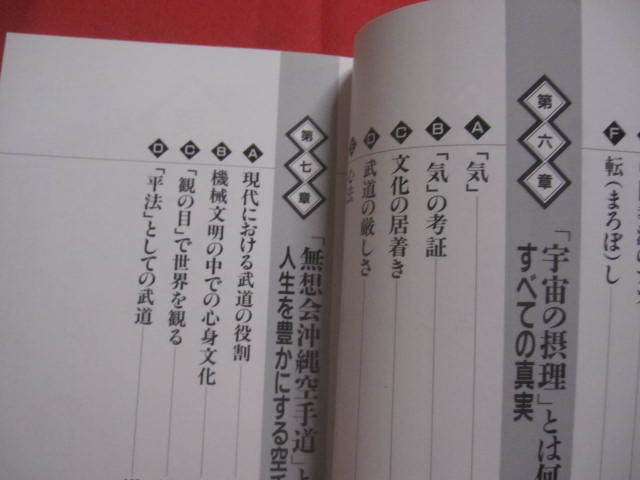 F 転(まろぼ)し
第六章
「宇宙の摂理」とは何
すべての真実
A 「気」
B 「気」の考証
C 文化の居着き
D 武道の厳しさ
心法
第七章
「無想会沖縄空手道」と
人生を豊かにする空手
A 現代における武道の役割
B 機械文明の中での心身文化
C 「観の目」で世界を観る
D 「平法」としての武道